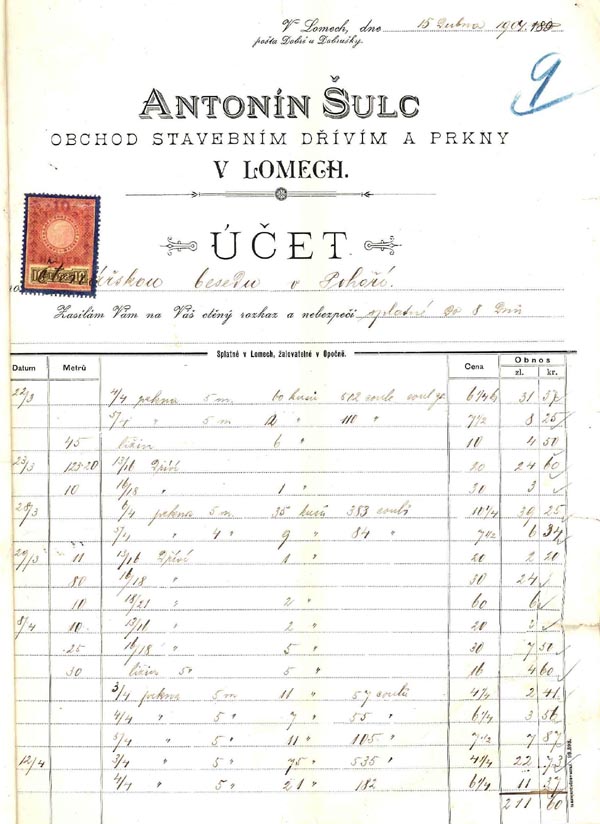 V Lomech, dne 15 Dubna 1901.
pošta Dobré u Dobrušky.
9
ANTONÍN ŠULC
OBCHOD STAVEBNÍM DŘÍVÍM A PRKNY
V LOMECH.
10
ÚČET
besedu v Pohoří.
Zasílám Vám na Váš ctěný rozkaz a nebezpečí splatné do 8 Dnů
Splatné v Lomech, žalovatelné v Opočně.
Datum Metrů Cena Obnos
zl. kr.
22/3 4/4 prkna 5 m 60 kusů 502 6 1/4 31 37
5/4 " 5 m 2 " 110 " 7 1/2 8 25
45 6 " 10 4 50
23/3 123·20 13/16 Dříví 20 24 60
10 16/18 " 1 " 30 3
28/3 6/4 prkna 5 m 35 kusů 383 10 1/4 39 25
5/4 " 4 " 9 " 84 " 7 1/2 6 34
29/3 11 13/16 Dříví 1 " 20 2 20
80 16/18 " 30 24
10 18/21 " 2 " 60 6
8/4 10 13/16 " 2 " 20 2
25 16/18 " 5 " 30 7 50
30 5 " 5 " 16 4 60
3/4 prkna 5 m 11 " 57 4 1/4 2 41
4/4 " 5 " 7 " 55 " 6 1/4 3 56
5/4 " 5 " 11 " 105 " 7 1/2 7 87
12/4 3/4 " 5 " 75 " 535 " 4 1/4 22 73
4/4 " 5 " 21 " 182 6 1/4 11 37
211 60